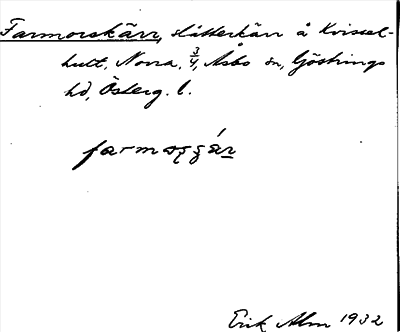 Farmorskärr, slåtterkärr å Kvissel-
hult, Norra, 3/4, Åsbo sn, Göstrings
hd, Österg. l.
farmoʂʂár
Erik Alm 1932